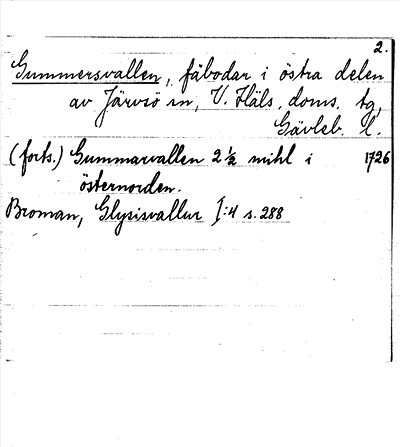 2.
Gummersvallen, fäbodar i östra delen
av Järvsö sn, V. Häls. doms. tg,
Gävleb. l.
(forts.) Gummarvallen 2 ½ mihl i 1726
östernorden.
Broman, Glysisvallur I:4 s. 288